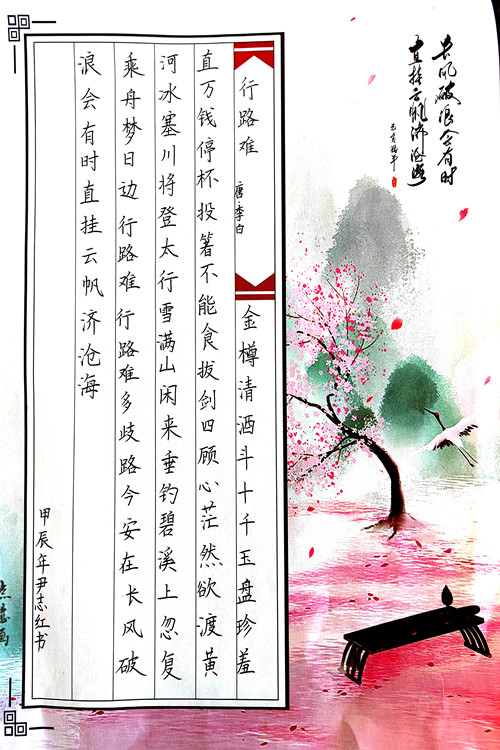 长风破浪会有时
直挂云帆济沧海
行路难
唐·李白
金樽清酒斗十千玉盘珍羞
直万钱停杯投箸不能食拔剑四顾心茫然欲渡黄
河冰塞川将登太行雪满山闲来垂钓碧溪上忽复
乘舟梦日边行路难行路难多歧路今安在长风破
浪会有时直挂云帆济沧海
甲辰年尹志红书